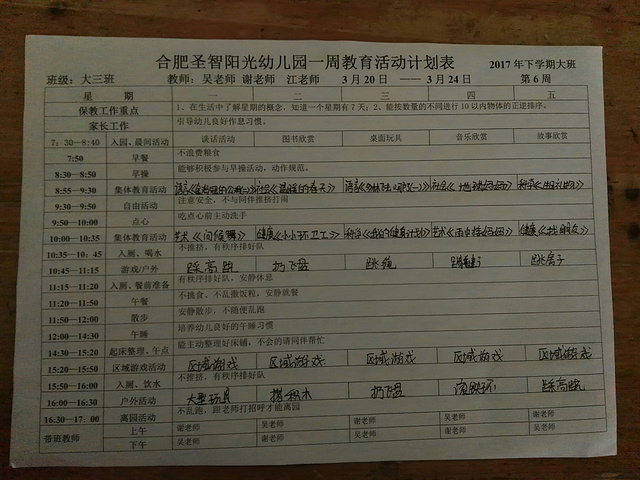 合肥圣智阳光幼儿园一周教育活动计划表 2017年下学期大班
班级：大三班 教师：吴老师 谢老师 江老师 3月20日 ——3月24日 第6周
星 期 一 二 三 四 五
保教工作重点 1、在生活中了解星期的概念，知道一个星期有7天；2、能按数量的不同进行10以内物体的正逆排序。
家长工作 引导幼儿良好作息习惯。
7：30—8:40 入园、晨间活动 谈话活动 图书欣赏 桌面玩具 音乐欣赏 故事欣赏
7:50 早餐 不浪费粮食
8:30—8:50 早操 能够积极参与早操活动，动作规范。
8:55—9:30 集体教育活动
9:30—9:50 自由活动 注意安全，不与同伴推挤打闹
9:50—10:00 点心 吃点心前主动洗手
10:00—10:35 集体教育活动 艺术《问候舞》 健康《小小环卫工》 艺术 健康
10:35—10：45 入厕、喝水 不推挤，有秩序排好队
10:45—11:15 游戏/户外 踩高跷 扔飞盘 跳绳 跳房子
11:15—11:20 入厕、餐前准备 有秩序排好队，安静休息
11:20—11:50 午餐 不挑食、不乱撒饭粒，安静就餐
11:50—12:00 散步 安静散步，不随便乱跑
12:00—14:30 午睡 培养幼儿良好的午睡习惯
14:30—15:20 起床整理、午点 能主动整理好床铺，不会的请同伴帮忙
15:20—15:50 区域游戏活动 区域游戏 区域游戏 区域游戏 区域游戏 区域游戏
15:50—16:00 入厕、饮水 不推挤，有秩序排好队
16:00—16:30 户外活动 大型玩具 搭积木 扔飞盘 踩高跷
16:30—17：00 离园活动 不乱跑，跟老师打招呼才能离园
带班教师 上午 谢老师 吴老师 谢老师 吴老师 谢老师
下午 吴老师 谢老师 吴老师 谢老师 吴老师